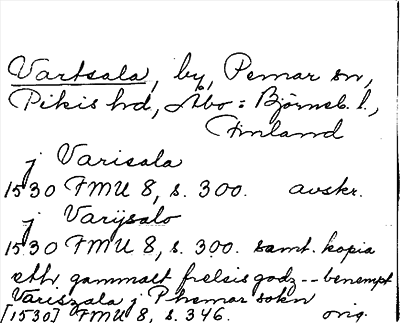 Vartsala, by, Pemar sn,
Pikis hd, Åbo: Björneb. l.,
Finland
j Varisala
1530 FMU 8, s. 300. avskr.
j Varijsalo
1530 FMU 8, s. 300. samt. kopia
etth gammalt frelsis godz -- benempt
Variszala j Phemar sokn
[1530] FMU 8, s. 346. orig.